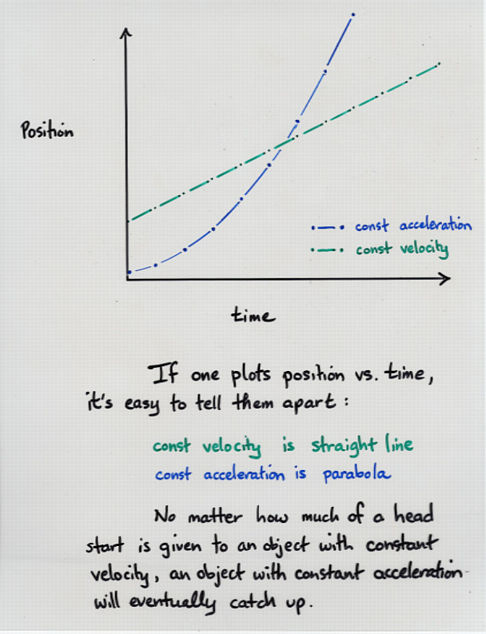 Position
const acceleration
const velocity
time
If one plots position vs. time,
it's easy to tell them apart :
const velocity is straight line
const acceleration is parabola
No matter how much of a head
start is given to an object with constant
velocity, an object with constant acceleration
will eventually catch up.